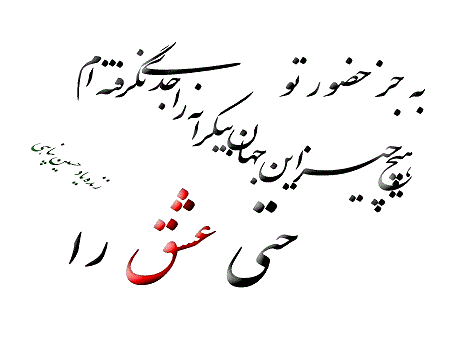 به جز حضور تو
هیچ چیز این جهان بیکرانه را جدی نگرفته ام
حتی عشق را
زنده یاد حسین پناهی